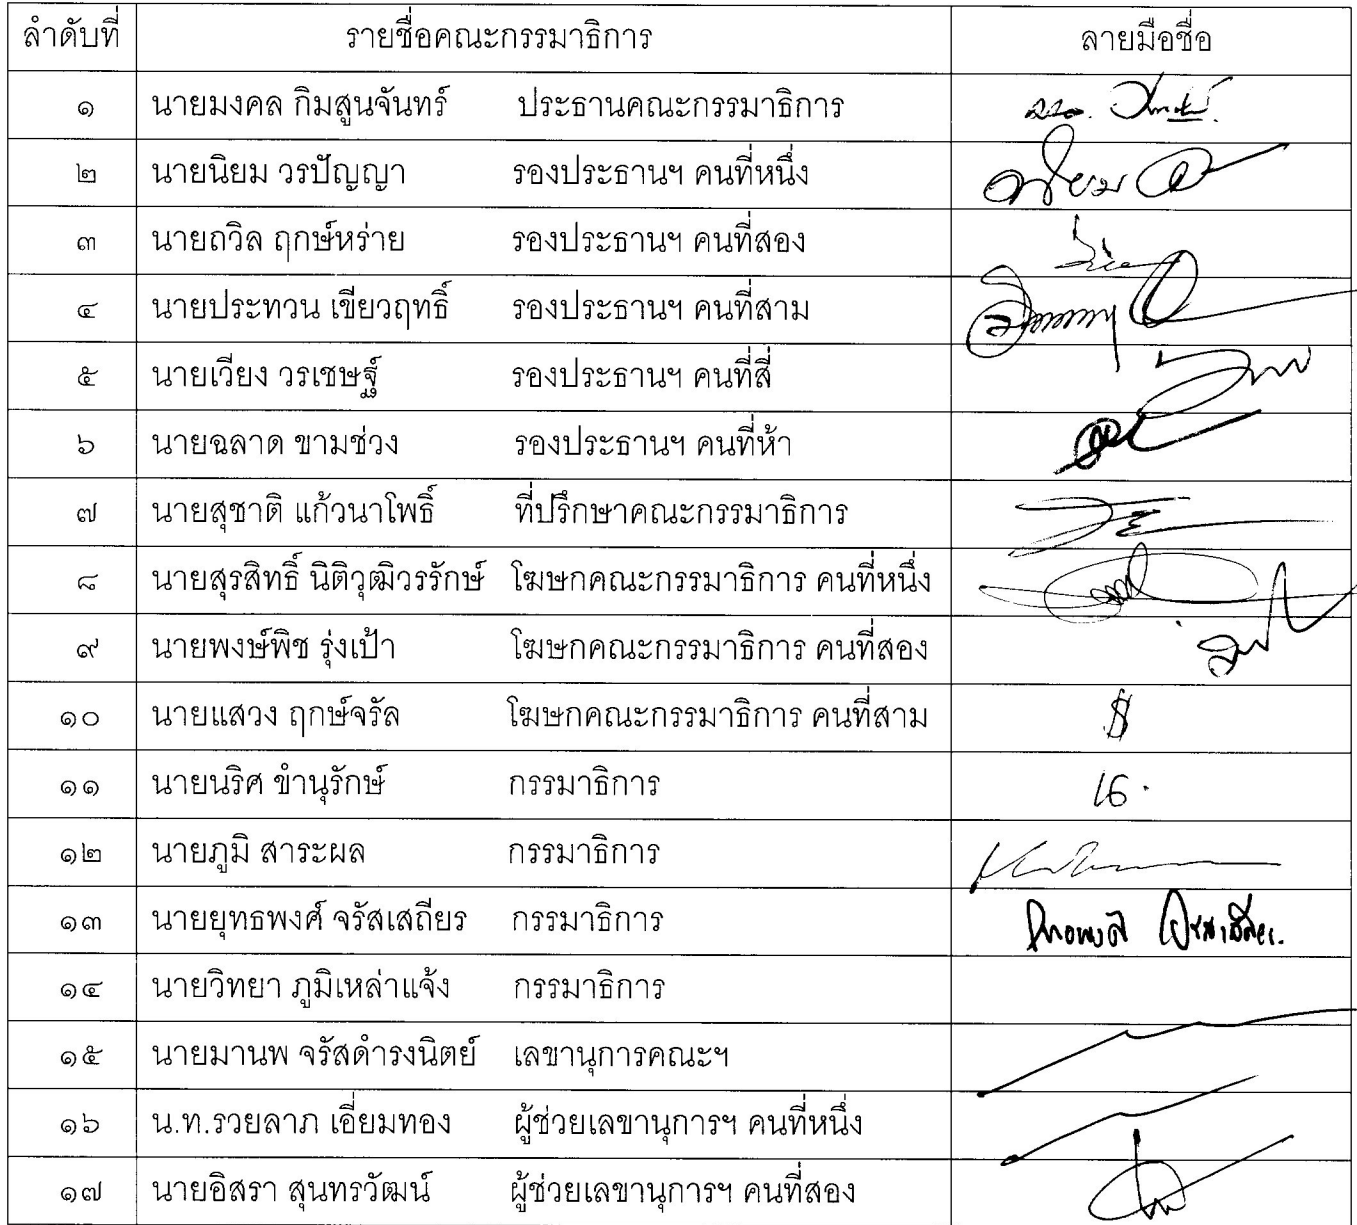 ลำดับที่ รายชื่อคณะกรรมาธิการ ลายมือชื่อ
๑ นายมงคล กิมสูนจันทร์ ประธานคณะกรรมาธิการ
๒ นายนิยม วรปัญญา รองประธานฯ คนที่หนึ่ง
๓ นายถวิล ฤกษ์หร่าย รองประธานฯ คนที่สอง
๔ นายประทวน เขียวฤทธิ์ รองประธานฯ คนที่สาม
๕ นายเวียง วรเชษฐ์ รองประธานฯ คนที่สี่
๖ นายฉลาด ขามช่วง รองประธานฯ คนที่ห้า
๗ นายสุชาติ แก้วนาโพธิ์ ที่ปรึกษาคณะกรรมาธิการ
๘ นายสุรสิทธิ์ นิติวุฒิวรรักษ์ โฆษกคณะกรรมาธิการ คนที่หนึ่ง
๙ นายพงษ์พิช รุ่งเป้า โฆษกคณะกรรมาธิการ คนที่สอง
๑๐ นายแสวง ฤกษ์จรัล โฆษกคณะกรรมาธิการ คนที่สาม
๑๑ นายนริศ ขำนุรักษ์ กรรมาธิการ
๑๒ นายภูมิ สาระผล กรรมาธิการ
๑๓ นายยุทธพงศ์ จรัสเสถียร กรรมาธิการ
๑๔ นายวิทยา ภูมิเหล่าแจ้ง กรรมาธิการ
๑๕ นายมานพ จรัสดำรงนิตย์ เลขานุการคณะฯ
๑๖ น.ท.รวยลาภ เอี่ยมทอง ผู้ช่วยเลขานุการฯ คนที่หนึ่ง
๑๗ นายอิสรา สุนทรวัฒน์ ผู้ช่วยเลขานุการฯ คนที่สอง